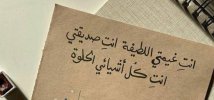 انتِ غيمتي اللطيفة انتِ صديقتي
انتِ كل أشيائي الحلوة